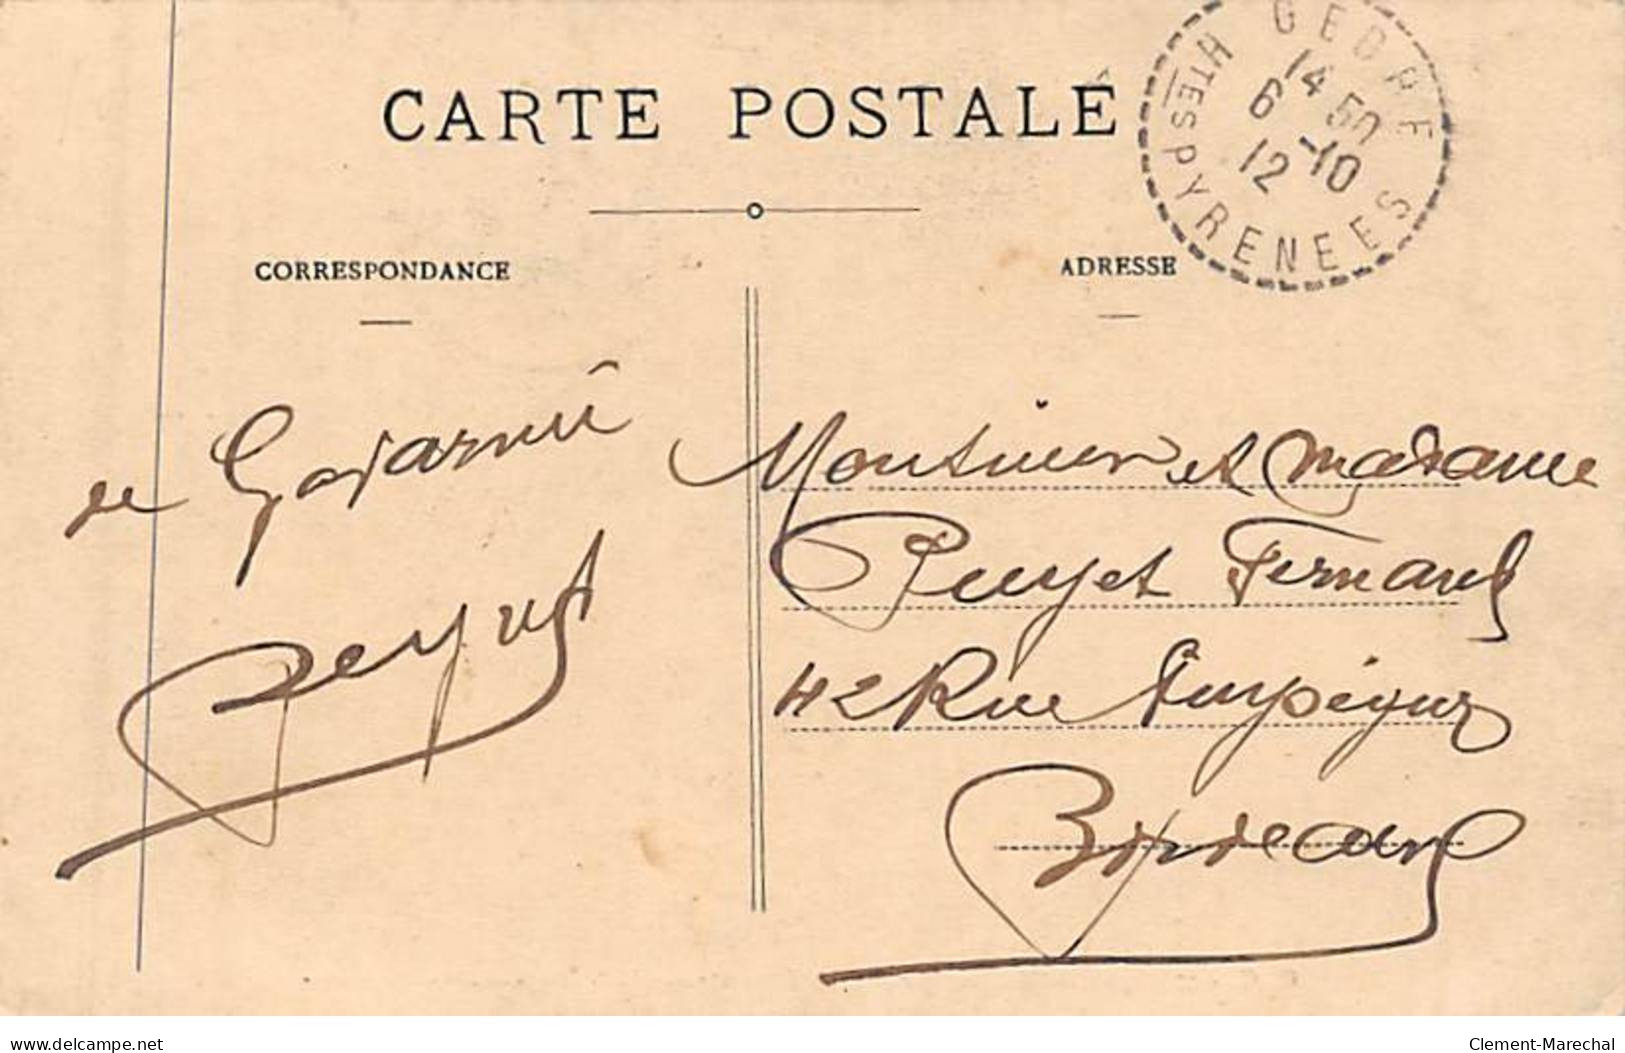 CARTE POSTALE
GEDRE
14 50
6 -10
12
HTES PYRENEES
CORRESPONDANCE
ADRESSE
de Gavarnie
Monsieur et Madame
Puyet Fernand
42 Rue
Bordeaux
www.delcampe.net
Clement-Marechal